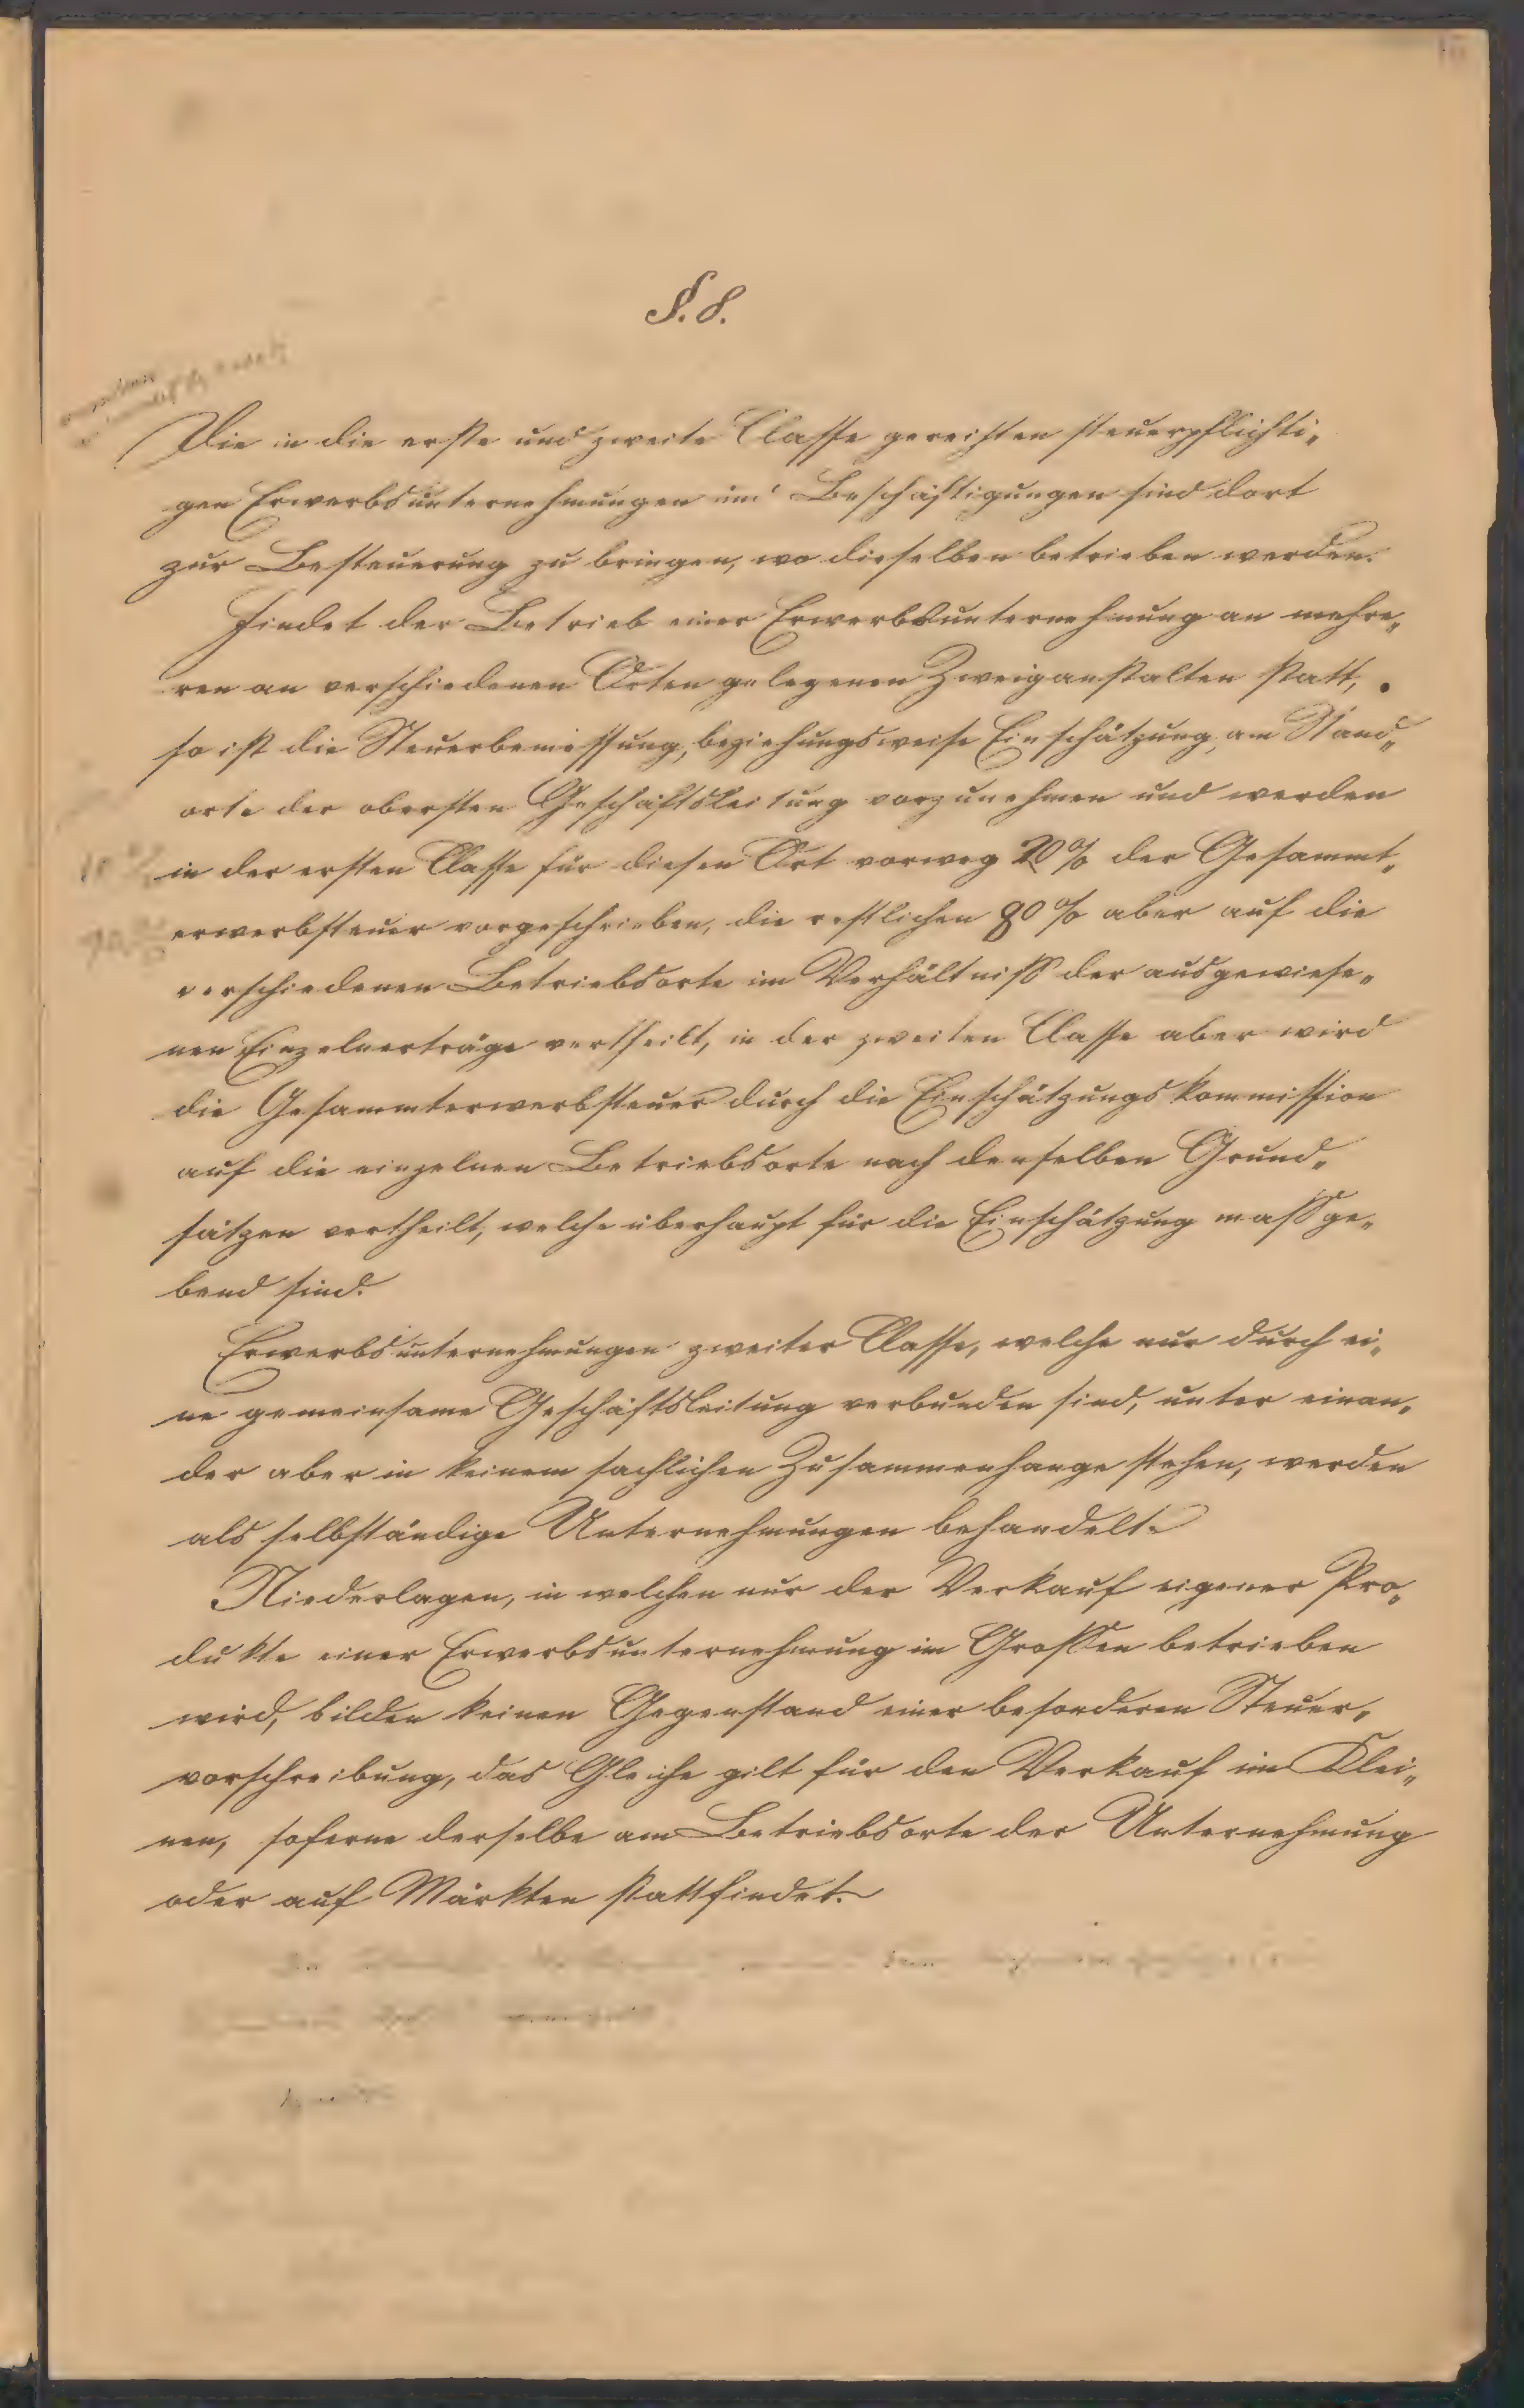 §. 8.
Die in die erste und zweite Classe gereihten steuerpflichti„
gen Erwerbsunternehmungen und Beschäftigungen sind dort
zur Besteuerung zu bringen, wo dieselben betrieben werden.
Findet der Betrieb einer Erwerbsunternehmung an mehre„
ren an verschiedenen Orten gelegenen Zweiganstalten statt,
so ist die Steuerbemessung, beziehungsweise Einschätzung, am Stand„
orte der obersten Geschäftsleitung vorzunehmen und werden
in der ersten Classe für diesen Ort vorweg 20% der Gesammt„
erwerbsteuer vorgeschrieben, die restlichen 80% aber auf die
verschiedenen Betriebsorte im Verhältniß der ausgewiese„
nen Einzelnerträge vertheilt, in der zweiten Classe aber wird
die Gesammterwerbsteuer durch die Einschätzungskommission
auf die einzelnen Betriebsorte nach denselben Grund„
sätzen vertheilt, welche überhaupt für die Einschätzung maßge„
bend sind.
Erwerbsunternehmungen zweiter Classe, welche nur durch ei„
ne gemeinsame Geschäftsleitung verbunden sind, unter einan„
der aber in keinem sachlichen Zusammenhange stehen, werden
als selbständige Unternehmungen behandelt.
Niederlagen, in welchen nur der Verkauf eigener Pro„
dukte einer Erwerbsunternehmung im Großen betrieben
wird, bilden keinen Gegenstand einer besonderen Steuer„
vorschreibung, das Gleiche gilt für den Verkauf im Klei„
nen, soferne derselbe am Betriebsorte der Unternehmung
oder auf Märkten stattfindet.